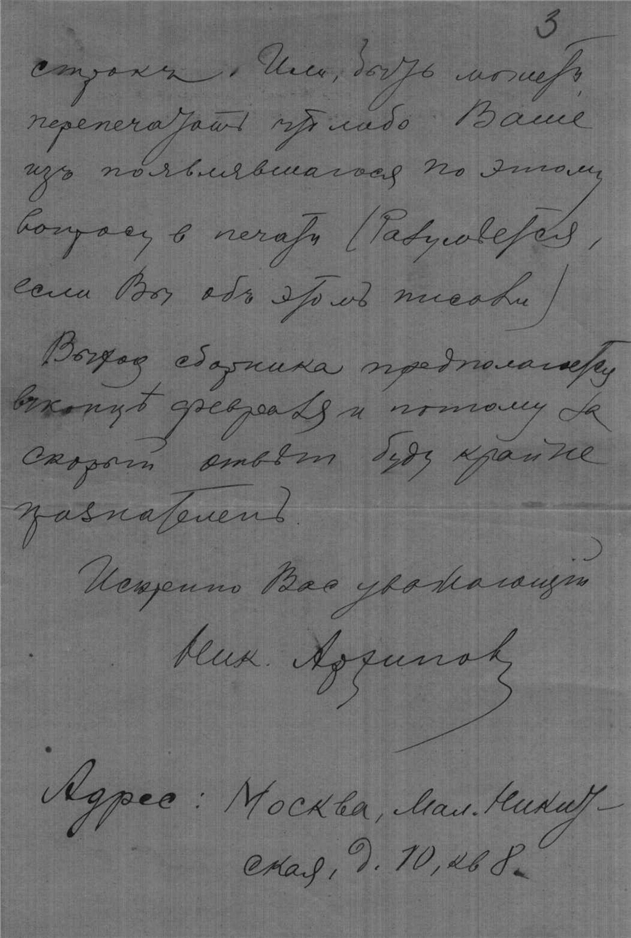 3
строкъ. Или, быть можетъ,
перепечатать что либо Ваше
изъ появлявшагося по этому
вопросу в печати (Разумѣется,
если Вы объ этомъ писали)
Выход сборника предполагается
въ концѣ февраля и потому за
скорый отвѣт буду крайне
признателенъ.
Искренно Вас уважающій
Ник. Архипов
Адрес: Москва, Мал. Никит-
ская, д. 10, кв 8.